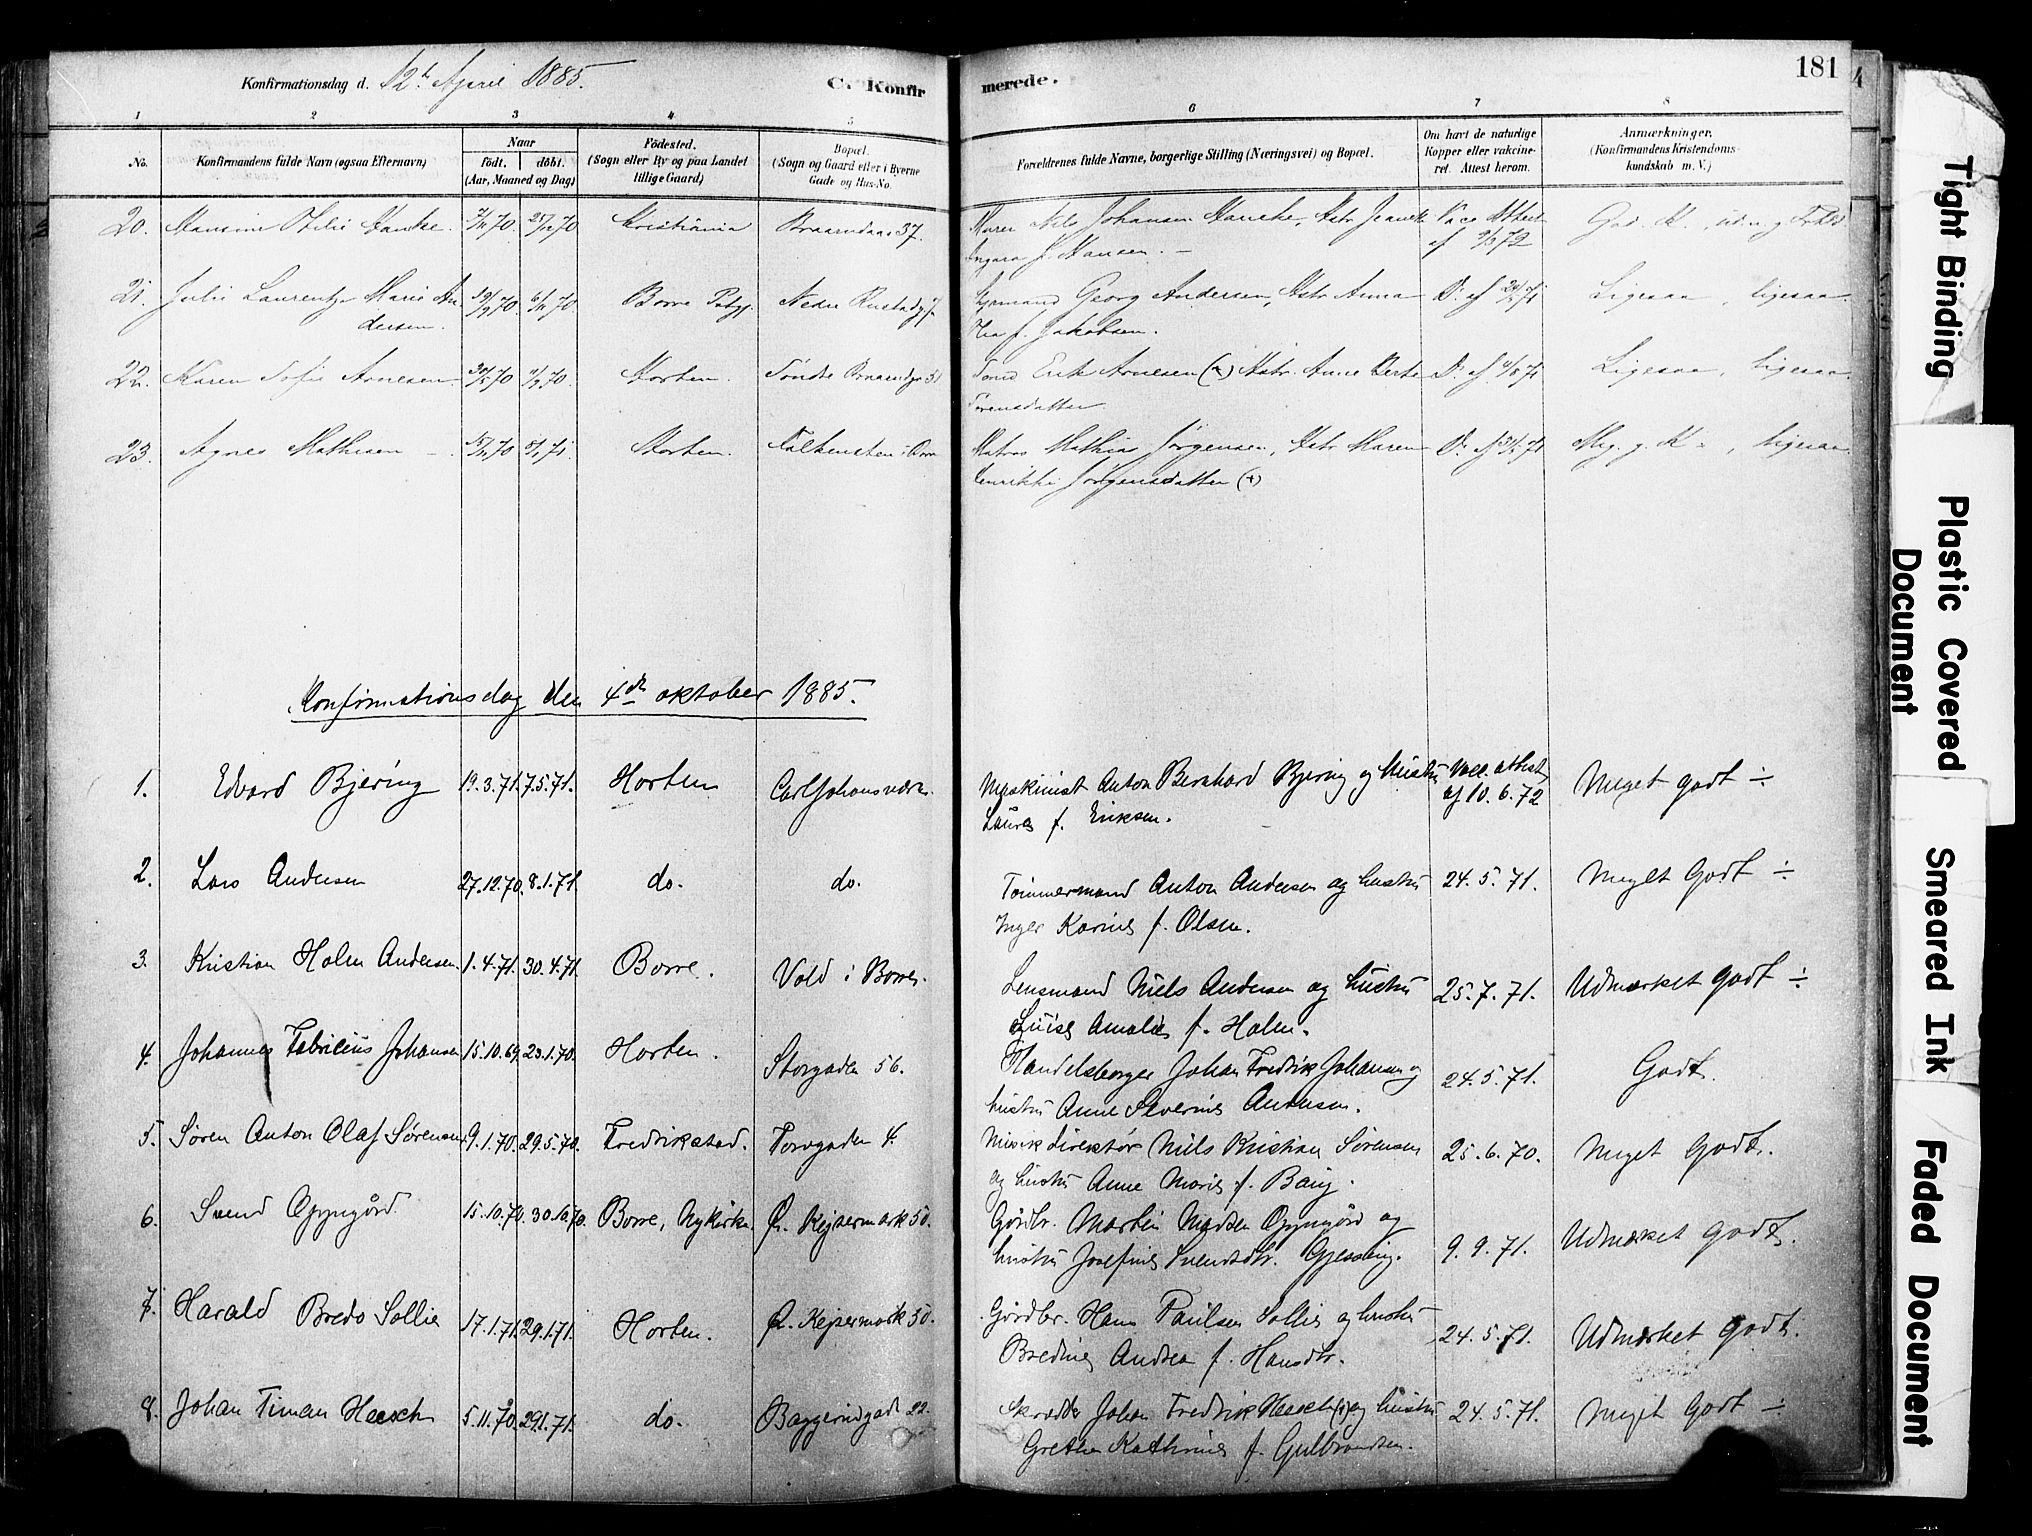 Konfirmationsdag d. 12te April 1885.
C. Konfirmerede.
181
1 2 3 4 5 6 7 8
No. Konfirmandens fulde Navn (ogsaa Efternavn) Naar födt. döbt. (Aar, Maaned og Dag) Födested. (Sogn eller By og paa Landet tillige Gaard) Bopæl. (Sogn og Gaard eller i Byerne Gade og Hus-No. Forældrenes fulde Navne, borgerlige Stilling (Næringsvei) og Bopæl. Om havt de naturlige Kopper eller vakcineret. Attest herom. Anmærkninger. (Konfirmandens Kristendomskundskab m. V.)
20. Otilie Hanche. 25/12 70 Kristiania 37. Murer Nils Johansen Hanche, Hstr Jeanette Vacc. Attest God. K.
Ingara f. Hansen. — af 9/3 72
21. Julie Laurentze Marie An- 70 6/11 70 Borre Georg Andersen, Hstr. Anna Do af 71 Ligesaa, ligesaa.
dersen. f. Jakobsen.
22. Karen Sofie Arnesen 30/5 70 70. Horten. Söndre Erik Arnesen (+) Hstr. Anne Do af 71 Ligesaa, ligesaa.
Sörensdatter
23. Agnes Mathisen 70 8/1 71. Horten. Falkensten i Matros Mathias Jörgensen, Hstr Maren Do af 71 Mg. g. K , ligesaa
Henrikke Jörgensdatter (+)
Konfirmationsdag den 4de oktober 1885.
1. Edvard Bjering 19.3.71. 7.5.71. Horten Carl Johansværn. Maskinist Anton Bernhard Bjering og hustru Vacc. attest Meget godt ÷
Laura f. Eriksen. af 10.6.72
2. Lars Andersen 27.12.70. 8.1.71. do. do. Tömmermand Anton Andersen og hustru 24.5.71. Meget Godt ÷
Inger Karine f. Olsen.
3. Kristian Holm Andersen. 1.4.71. 30.4.71 Borre. Vold i Borre. Lensmand Niels Andersen og hustru 25.7.71. Udmærket godt ÷
Luise Amalie f. Holm.
4. Johannes Fabricius Johansen 15.10.69. 23.1.70. Horten. Storgaden 56. Handelsborger Johan Fredrik Johansen og 24.5.71. Godt.
hustru Anne Severine Andersen.
5. Søren Anton Olaf Sørensen 9.1.70. 29.5.70. Fredrikstad. Torvgaden 4. Musikdirektør Niels Kristian Sørensen 25.6.70. Meget Godt.
og hustru Anne Marie f. Bang.
6. Svend Oppegård 15.10.70. 30.10.70. Borre, Nykirke Ø. Kejsermark 50. Gårdbr. Martin Madsen Oppegård og 9.9.71. Udmærket godt.
hustru Josefine Svendsdtr. Gjessing.
7. Harald Bredo Sollie 17.1.71. 29.1.71. Horten. Ø. Kejsermark 50. Gårdbr. Hans Paulsen Sollie og hustru 24.5.71. Udmærket godt.
Bredine Andrea f. Hansdtr.
8. Johan Timan Heesch 5.11.70. 29.1.71. do. Baggerudgade 22. Skrædder Johan Fredrik Heesch (+) og hustru 24.5.71. Meget Godt ÷
Grethe Kathrine f. Gulbrandsen.
Tight Binding
Plastic Covered Document
Smeared Ink
Faded Document